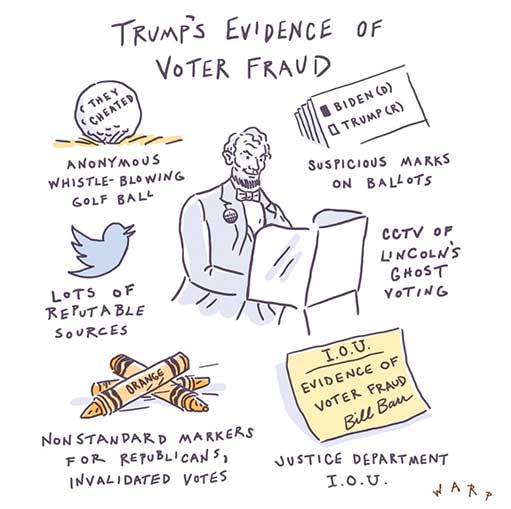 TRUMP'S EVIDENCE OF
VOTER FRAUD
THEY
CHEATED
ANONYMOUS
WHISTLE-BLOWING
GOLF BALL
BIDEN (D)
TRUMP (R)
SUSPICIOUS MARKS
ON BALLOTS
LOTS OF
REPUTABLE
SOURCES
CCTV OF
LINCOLN'S
GHOST
VOTING
ORANGE
NONSTANDARD MARKERS
FOR REPUBLICANS,
INVALIDATED VOTES
I.O.U.
EVIDENCE OF
VOTER FRAUD
Bill Barr
JUSTICE DEPARTMENT
I.O.U.
WARP